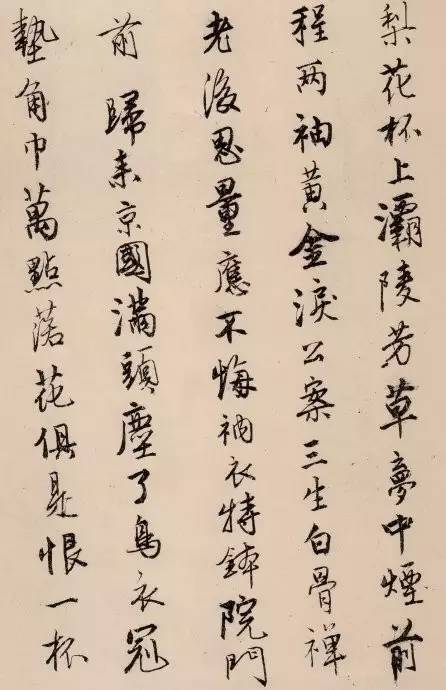 梨花杯上灞陵芳草夢中煙前
程两袖黃金淚公案三生白骨禪
老後思量應不悔衲衣持鉢院門
前 歸来京國滿頭塵了鳥衣冠
墊角巾萬點落花俱是恨一杯